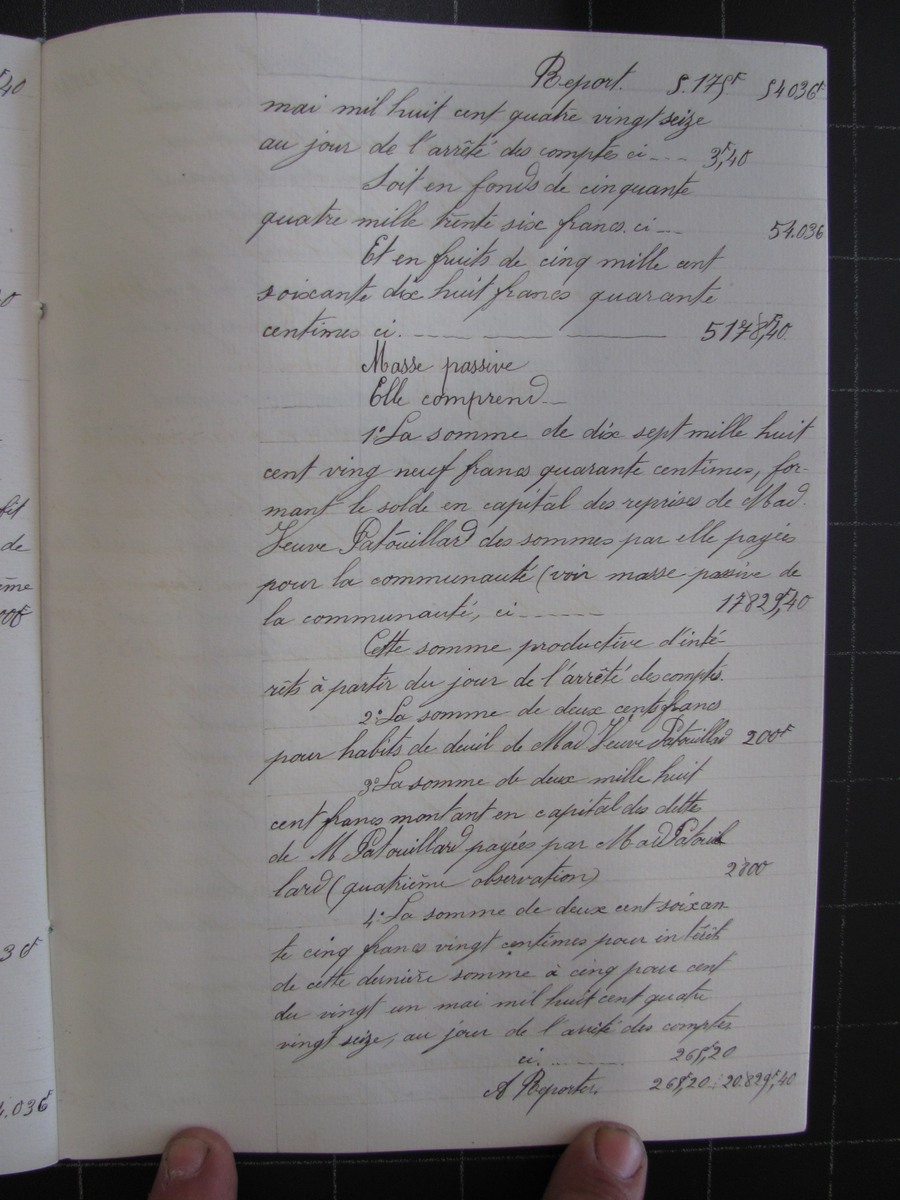 Report. 5.175F 54036F
mai mil huit cent quatre vingt seize
au jour de l'arrêté des comptes ci --- 3F,40
Soit en fonds de cinquante
quatre mille trente six francs. ci --- 54.036
Et en fruits de cinq mille cent
soixante dix huit francs quarante
centimes ci. --- 5178F,40.
Masse passive
Elle comprend --
1° La somme de dix sept mille huit
cent ving neuf francs quarante centimes, for-
mant le solde en capital des reprises de Mad.
Veuve Patouillard des sommes par elle payées
pour la communauté (voir masse passive de
la communauté, ci --- 17829F,40
Cette somme productive d'inté-
rêts à partir du jour de l'arrêté des comptes.
2° La somme de deux cents francs
pour habits de deuil de Mad Veuve Patouillard 200F
3° La somme de deux mille huit
cent francs montant en capital des dettes
de M Patouillard payées par Mad Patouil
lard (quatrième observation) 2800
4° La somme de deux cent soixan
te cinq francs vingt centimes pour intérêt
de cette dernière somme à cinq pour cent
du vingt un mai mil huit cent quatre
vingt seize, au jour de l'arrêté des comptes
ci. --- 265F,20
A Reporter. 265F,20 20.829F,40
F40
de
ème
36F
4.036F